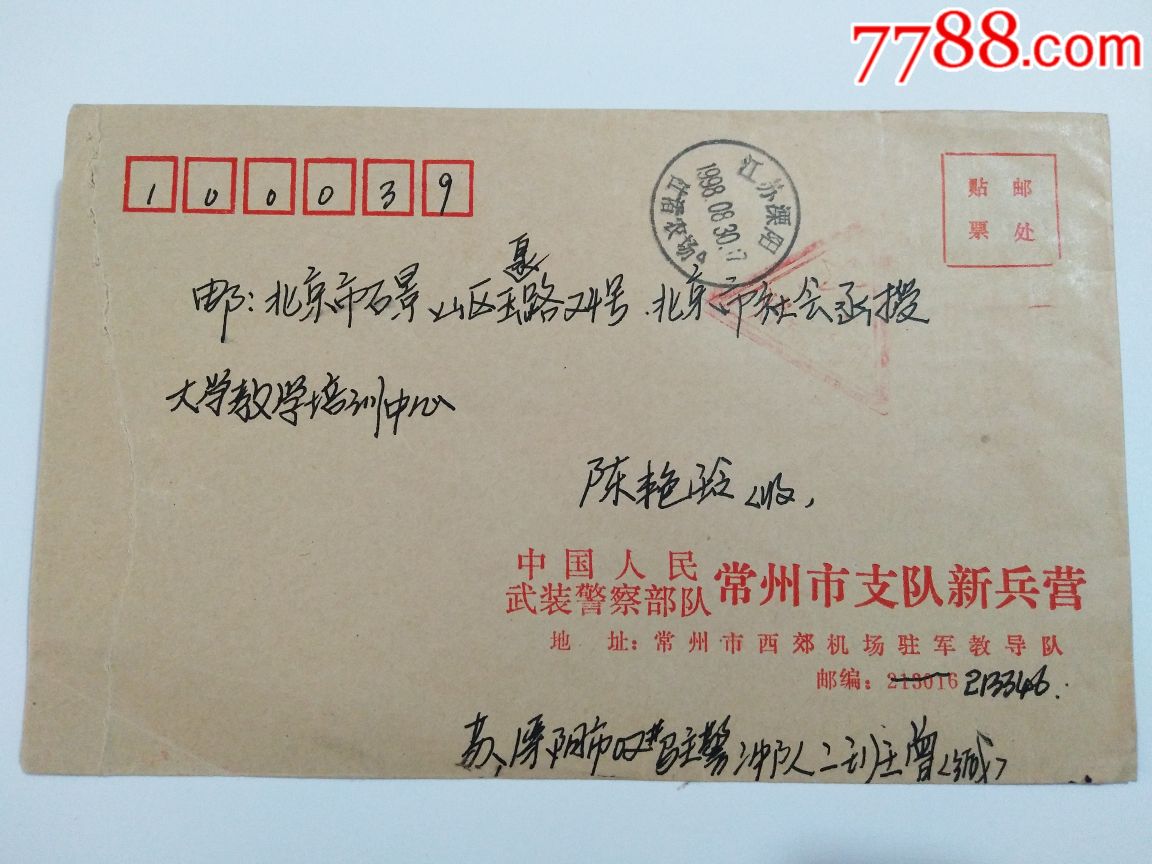 7788.com
100039
江苏溧阳
1998.08.30.17
竹箦农场
贴邮
票处
泉
邮:北京市石景山区玉路24号.北京市社会函授
大学教学培训中心
陈艳玲收
中国人民
武装警察部队
常州市支队新兵营
地址:常州市西郊机场驻军教导队
邮编:213016 213346.
苏溧阳市 武警 中队 曾